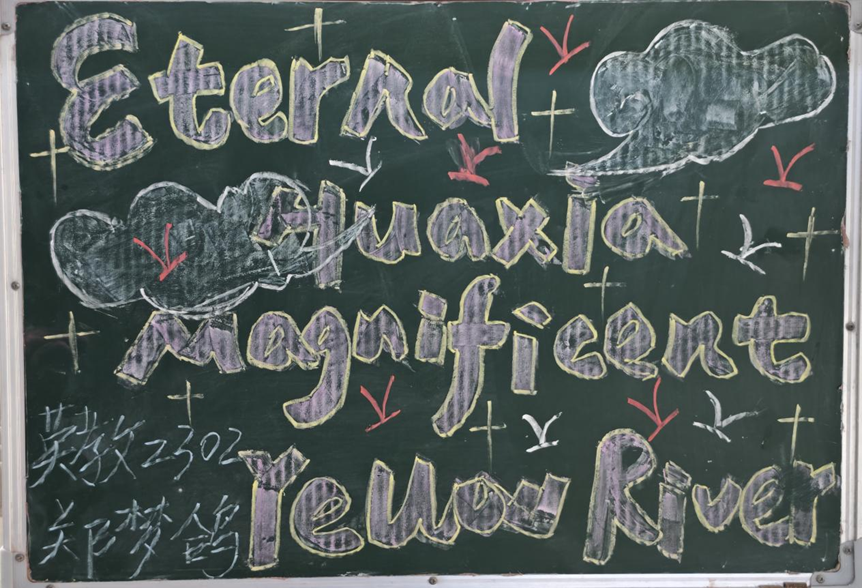 Eternal
Huaxia
Magnificent
英教2302
Yellow River
郑梦鸽